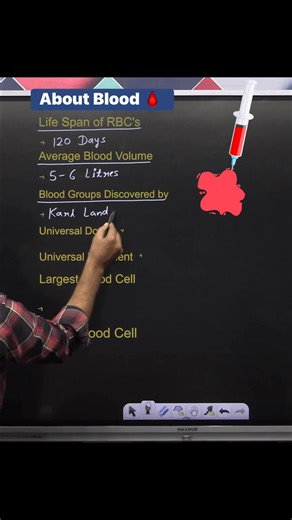 About Blood 🩸
Life Span of RBC's
→ 120 Days
Average Blood Volume
→ 5-6 Litres
Blood Groups Discovered by
→ Karl Land
Universal Do
Universal
Largest Blood Cell
ood Cell